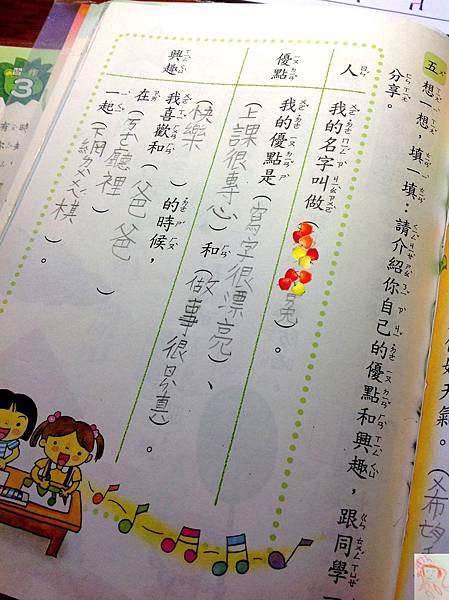 五 想一想，填一填：請介紹你自己的優點和興趣，跟同學
分享。
人
我的名字叫做
）。
優點
我的優點是（寫字很漂亮）、
（上課很專心）和（做事很真）。
興趣
（快樂）的時候，
我喜歡和（爸爸）
在（客廳裡）
一起（下棋）。
天氣。（希望
3